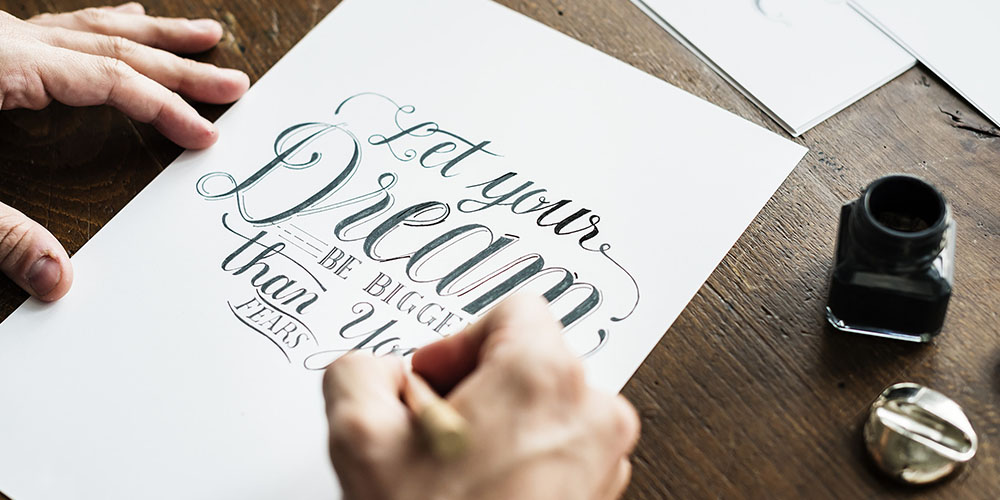 Let your
Dream
BE BIGGE
than You
FEARS